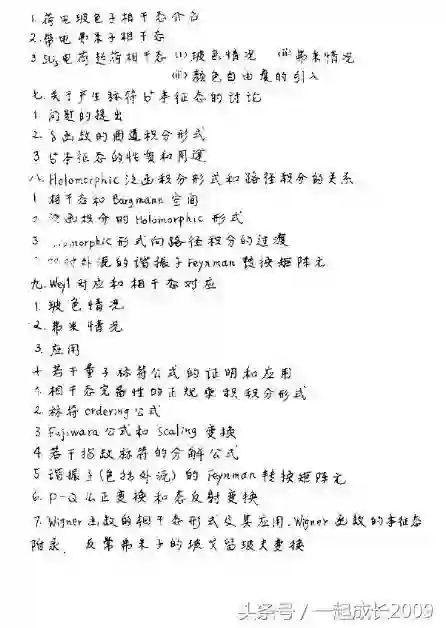 1. 荷电玻色子相干态介绍
2. 带电费米子相干态
3 SU₃电荷超荷相干态 (i) 玻色情况 (ii) 弗米情况
(iii) 颜色自由度的引入
七. 关于产生算符 b⁺本征态的讨论
1 问题的提出
2. δ函数的围道积分形式
3 b⁺本征态的性质和用途
八. Holomorphic 泛函积分形式和路径积分的关系
1 相干态和 Bargmann 空间
2 泛函积分的 Holomorphic 形式
3 morphic 形式向路径积分的过渡
外混的谐振子 Feynman 转换矩阵元
九. Weyl 对应和相干态对应
1. 玻色情况
2. 弗米情况
3. 应用
十. 若干量子算符公式的证明和应用
1. 相干态完备性的正规乘积积分形式
2. 算符 ordering 公式
3 Fujiwara 公式和 Scaling 变换
4. 若干指数算符的分解公式
5 谐振子(包括外混) 的 Feynman 转换矩阵元
6. P-Q 么正变换和态反射变换
7. Wigner 函数的相干态形式及其应用. Wigner 函数的本征态
附录. 反常弗米子的玻戈留玻夫变换
头条号 / 一起成长2009